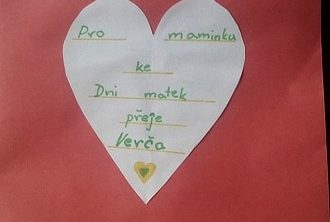 Pro maminku
ke
Dni matek
přeje
Verča